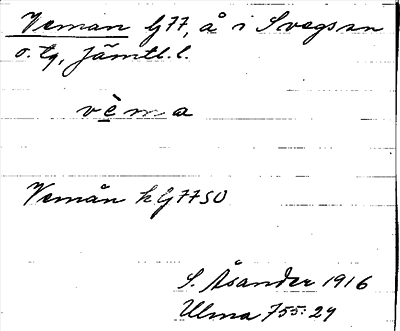 Veman G77, å i Svegs sn
o. tg, Jämtl. l.
vèma
Vemån k G77SO
S. Åsander 1916
Ulma 755:29